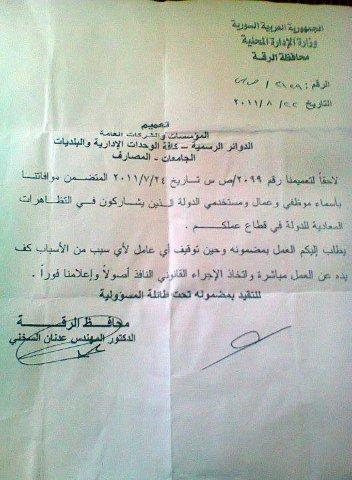 الجمهورية العربية السورية
وزارة الإدارة المحلية
محافظة الرقة
الرقم: / ص س
التاريخ ٢٢ / ٨ / ٢٠١١
تعميم
المؤسسات والشركات العامة
الدوائر الرسمية – كافة الوحدات الإدارية والبلديات
الجامعات - المصارف
لاحقاً لتعميمنا رقم ٢٠٩٩/ص س تاريخ ٢٠١١/٧/٢٤ المتضمن موافاتنا
بأسماء موظفي وعمال ومستخدمي الدولة الذين يشاركون في التظاهرات
المعادية للدولة في قطاع عملكم .
يطلب إليكم العمل بمضمونه وحين توقيف أي عامل لأي سبب من الأسباب كف
يده عن العمل مباشرة واتخاذ الإجراء القانوني النافذ أصولاً وإعلامنا فوراً .
للتقيد بمضمونه تحت طائلة المسؤولية
محافظ الرقة
الدكتور المهندس عدنان السخني